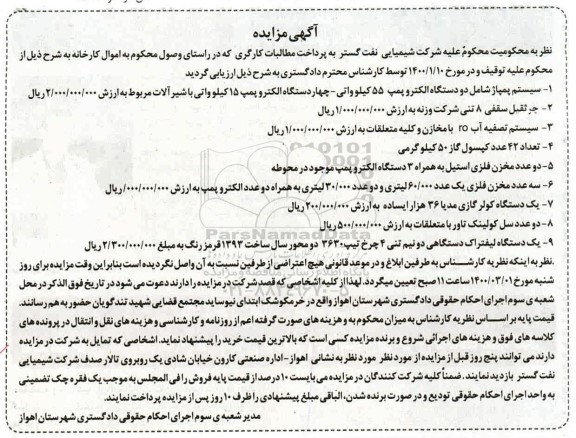 آگهی مزایده
نظر به محکومیت محکومٌ علیه شرکت شیمیایی نفت گستر به پرداخت مطالبات کارگری که در راستای وصول محکوم به اموال کارخانه به شرح ذیل از
محکوم علیه توقیف و در مورخ ۱۴۰۰/۱/۱۰ توسط کارشناس محترم دادگستری به شرح ذیل ارزیابی گردید
۱- سیستم پمپاژ شامل دو دستگاه الکترو پمپ ۵۵ کیلو واتی - چهار دستگاه الکترو پمپ ۱۵ کیلو واتی با شیر آلات مربوط به ارزش ۲/۰۰۰/۰۰۰/۰۰۰ ریال
۲- جرثقیل سقفی ۸ تنی شرکت وزنه به ارزش ۱/۰۰۰/۰۰۰/۰۰۰ ریال
۳- سیستم تصفیه آب ro با مخازن و کلیه متعلقات به ارزش ۱/۰۰۰/۰۰۰/۰۰۰ ریال
۴- تعداد ۴۲ عدد کپسول گاز ۵۰ کیلو گرمی
۵- دو عدد مخزن فلزی استیل به همراه ۳ دستگاه الکترو پمپ موجود در محوطه
۶- سه عدد مخزن فلزی یک عدد ۶۰/۰۰۰ لیتری و دو عدد ۳۰/۰۰۰ لیتری به همراه دو عدد الکترو پمپ به ارزش ۱/۰۰۰/۰۰۰/۰۰۰ ریال
۷- یک دستگاه کولر گازی مدیا ۳۶ هزار ایستاده به ارزش ۲۰۰/۰۰۰/۰۰۰ ریال
۸- دو عدد سل کولینک تاور با متعلقات به ارزش ۵۰۰/۰۰۰/۰۰۰ ریال
۹- یک دستگاه لیفتراک دستگاهی دو نیم تنی ۴ چرخ تیپ ۳۶۳۰ دو محور سال ساخت ۱۳۹۳ قرمز رنگ به مبلغ ۲/۳۰۰/۰۰۰/۰۰۰ ریال
.نظر به اینکه نظریه کارشناس به طرفین ابلاغ و در موعد قانونی هیچ اعتراضی از طرفین نسبت به آن واصل نگردیده است بنابراین وقت مزایده برای روز
شنبه مورخ ۱۴۰۰/۰۳/۰۱ ساعت ۱۱ صبح تعیین میگردد. لهذا از کلیه اشخاصی که قصد شرکت در مزایده را دارند دعوت می شود در تاریخ فوق الذکر در محل
شعبه ی سوم اجرای احکام حقوقی دادگستری شهرستان اهواز واقع در خرمکوشک ابتدای نیوساید مجتمع قضایی شهید تندگویان حضور به هم رسانند.
قیمت پایه بر اساس نظریه کارشناس به میزان محکوم به و هزینه های صورت گرفته اعم از روزنامه و کارشناسی و هزینه های نقل و انتقال در پرونده های
کلاسه های فوق و هزینه های اجرائی شروع و برنده مزایده کسی است که بالاترین قیمت خرید را پیشنهاد نماید. اشخاصی که تمایل به شرکت در مزایده
دارند می توانند پنج روز قبل از مزایده از مورد نظر مورد نظر به نشانی اهواز - اداره صنعتی کارون خیابان شادی یک روبروی تالار صدف شرکت شیمیایی
نفت گستر بازدید نمایند. ضمناً کلیه شرکت کنندگان در مزایده می بایست ۱۰ درصد از قیمت پایه فروش را فی المجلس به موجب یک فقره چک تضمینی
به واحد اجرای احکام حقوقی تودیع و در صورت برنده شدن، الباقی مبلغ پیشنهادی را ظرف ۱۰ روز پس از مزایده پرداخت نمایند.
مدیر شعبه ی سوم اجرای احکام حقوقی دادگستری شهرستان اهواز